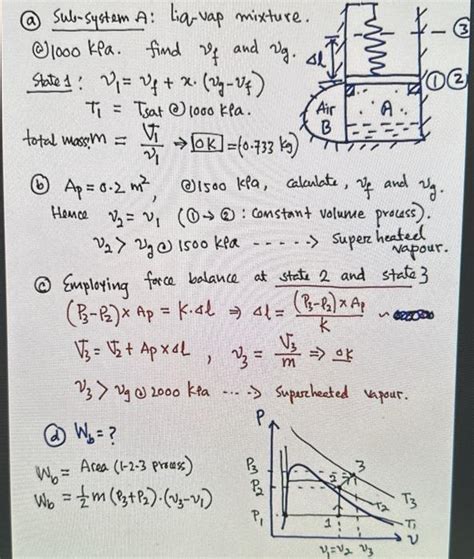 ⓐ Sub-system A: Liq-vap mixture.
@1000 kPa. find v_f and v_g.
State 1: v₁ = v_f + x.(v_g-v_f)
T₁ = Tsat @1000 kPa.
total mass: m = V₁/v₁ → OK = (0.733 kg)
Δl
③
① ②
Air
B
A
ⓑ Ap = 0.2 m², @1500 kPa, calculate, v_f and v_g.
Hence v₂ = v₁ (①→②: Constant volume process).
v₂ > v_g @1500 kPa -----> Superheated
vapour.
ⓒ Employing force balance at state 2 and state 3
(P₃-P₂) × Ap = K.Δl ⇒ Δl = (P₃-P₂)×Ap/K
V₃ = V₂ + Ap×Δl , v₃ = V₃/m ⇒ OK
v₃ > v_g @ 2000 kPa ---> Superheated vapour.
ⓓ W_b = ?
W_b = Area (1-2-3 process)
W_b = ½ m (P₃+P₂).(v₃-v₁)
P
P₃
P₂
P₁
3
2
1
T₃
T₂
T₁
v
v₁=v₂ v₃